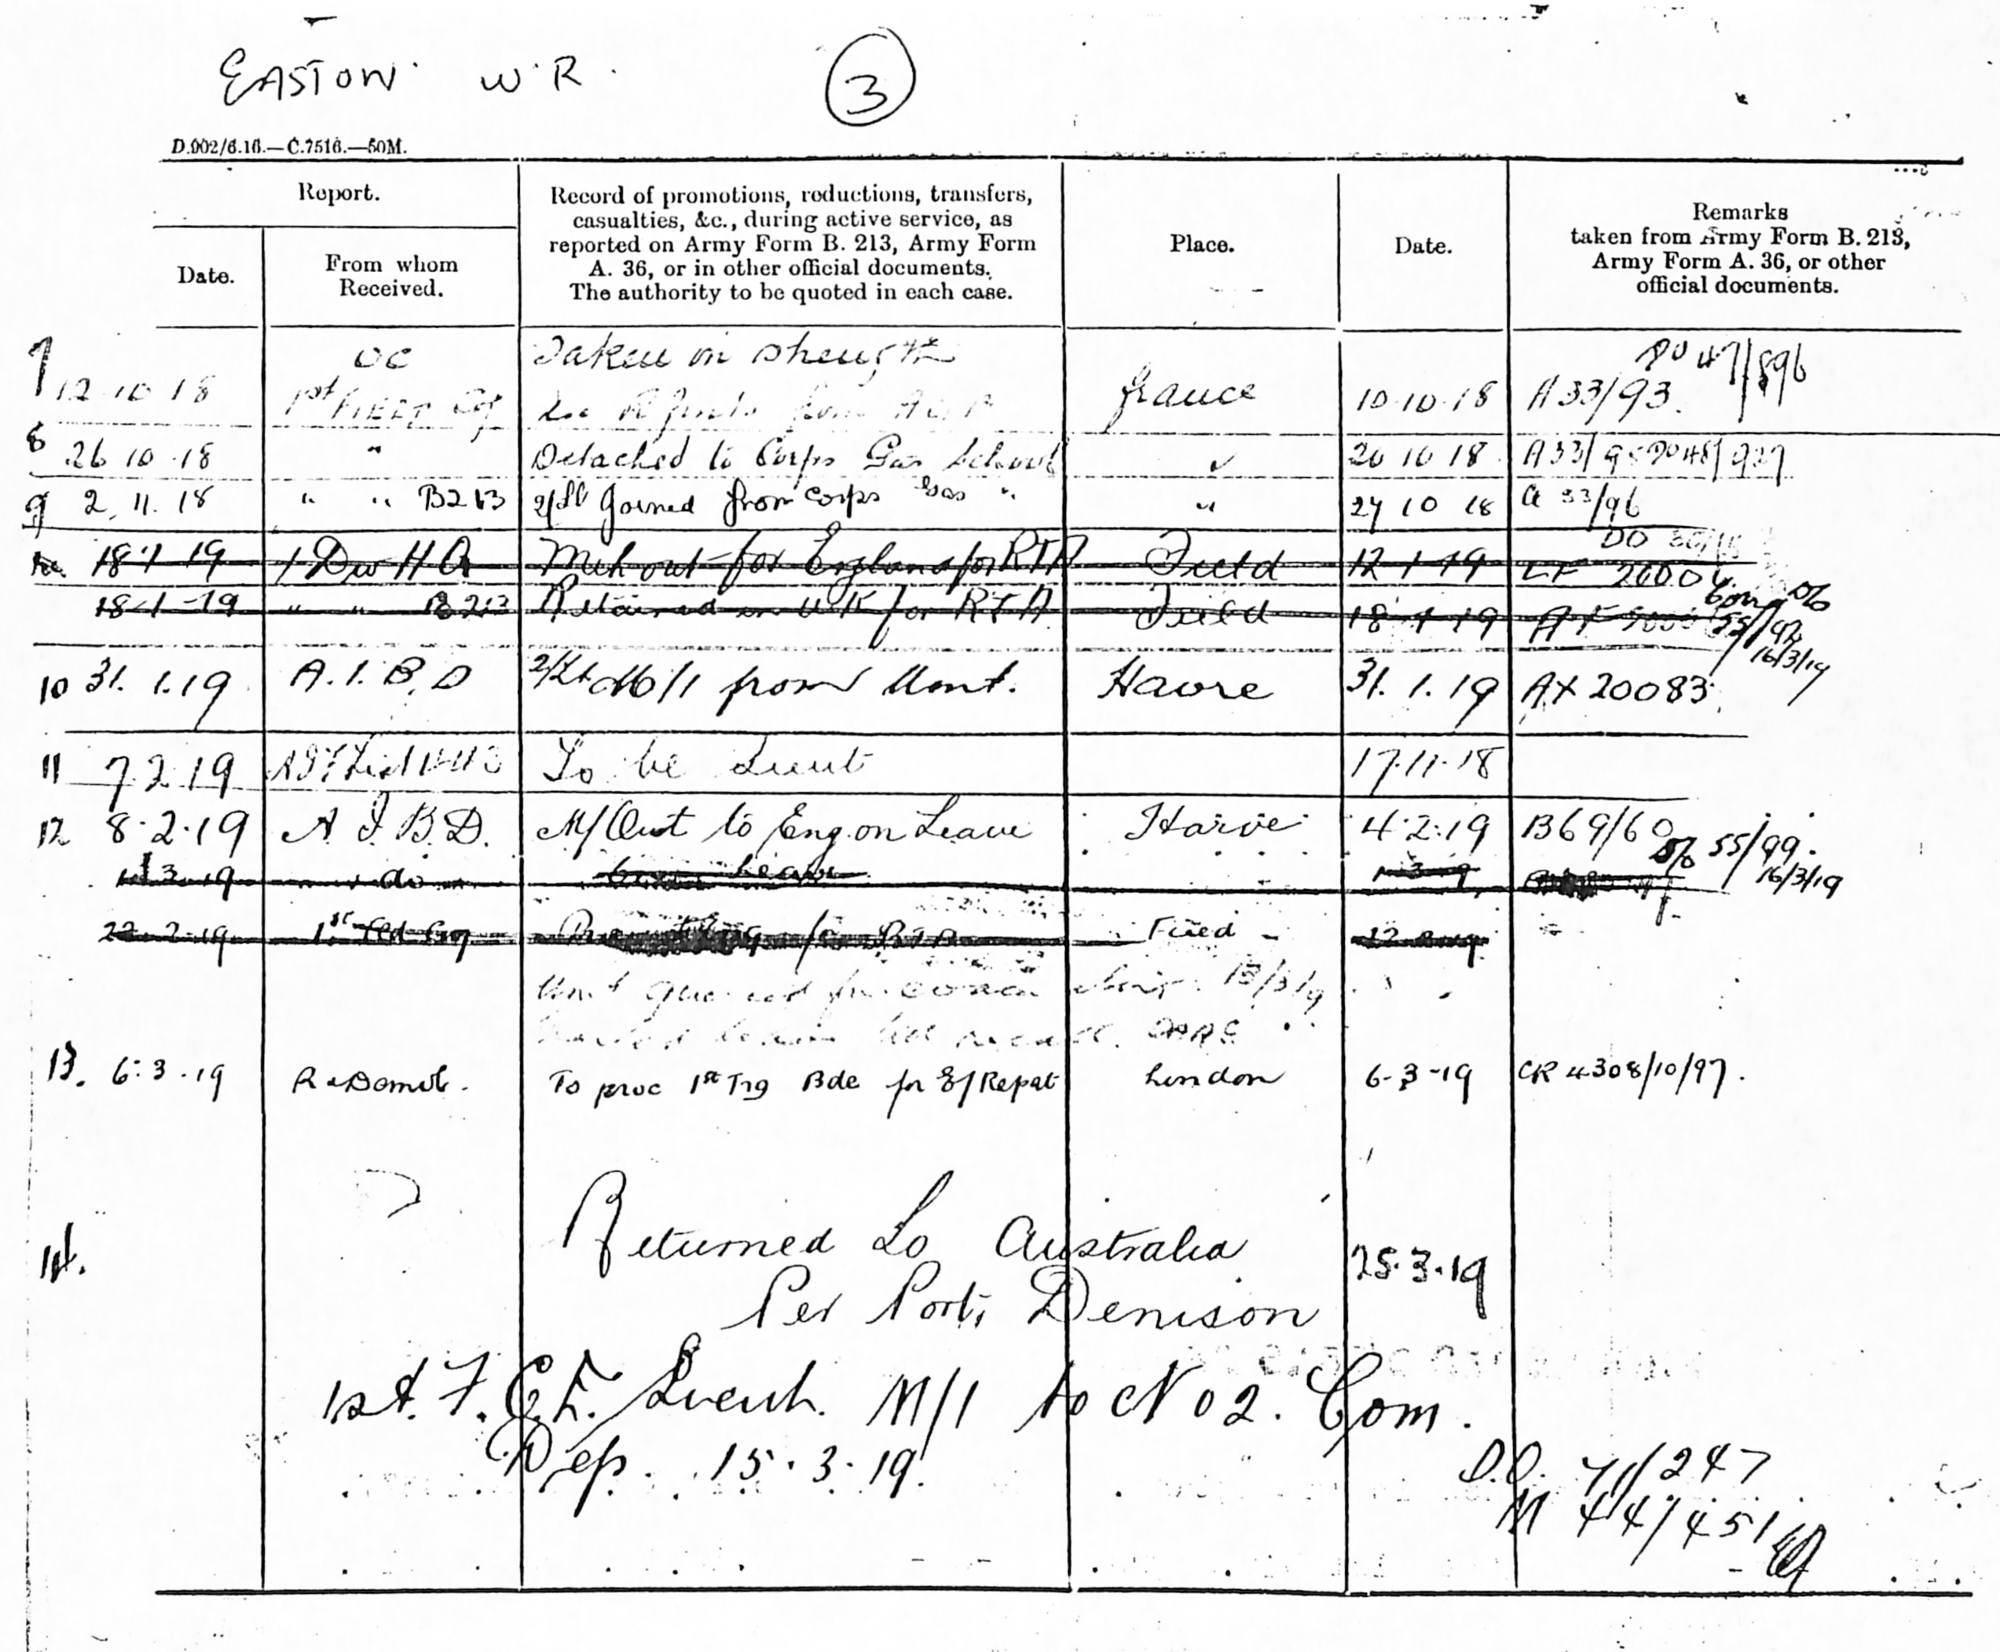 EASTON W.R.
3
D.902/6.16.—C.7516.—50M.
Report.
Date.
From whom
Received.
Record of promotions, reductions, transfers,
casualties, &c., during active service, as
reported on Army Form B. 213, Army Form
A. 36, or in other official documents.
The authority to be quoted in each case.
Place.
Date.
Remarks
taken from Army Form B. 213,
Army Form A. 36, or other
official documents.
7 12 10 18 OC Taken on strength France 10.10.18 A33/93. DO 47/896
1st FIELD Coy from
8 26 10 18 " Detached to Corps Gas School " 20 10 18 A33/95 DO 48/927
9 2.11.18 " " B213 2/Lt Joined from Corps Gas " " 27 10 18 A 33/96
18 1 19 1 Div HQ M'ch out for England for RTA Field 12-1-19 DO
18-1-19 " " B213 Retained in UK for RTA Field 18-1-19
55/97 16/3/19
10 31.1.19 A.I.B.D 2/Lt M/I from Unit. Havre 31.1.19 AX 20083
11 7.2.19 AIF List To be Lieut 17.11.18
12 8.2.19 A.I.B.D. M/Out to Eng. on Leave Harve 4.2.19 B69/60 D/o 55/99. 16/3/19
3.19 do Leave
22.2.19 1st Fld Coy Field
Unit 13/3/19
13. 6.3.19 R & Demob. To proc 1st Trg Bde for E/Repat London 6-3-19 CR 4308/10/97.
14. Returned to Australia 25.3.19
Per Port Denison
1st. F.C.E. Lieut. M/I to No 2. Com.
Dep. 15.3.19.
D.O. 71/247
M 44/451